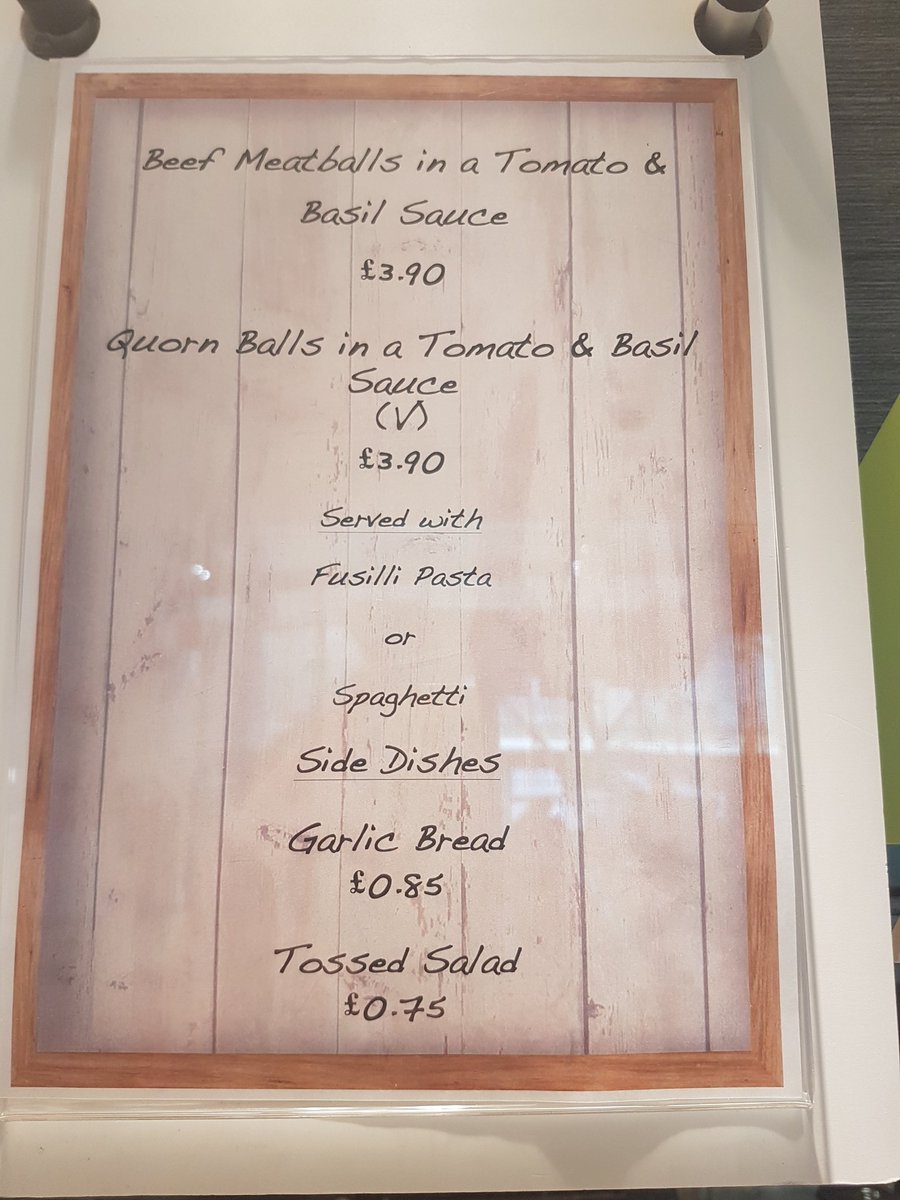 Beef Meatballs in a Tomato &
Basil Sauce
£3.90
Quorn Balls in a Tomato & Basil
Sauce
(V)
£3.90
Served with
Fusilli Pasta
or
Spaghetti
Side Dishes
Garlic Bread
£0.85
Tossed Salad
£0.75